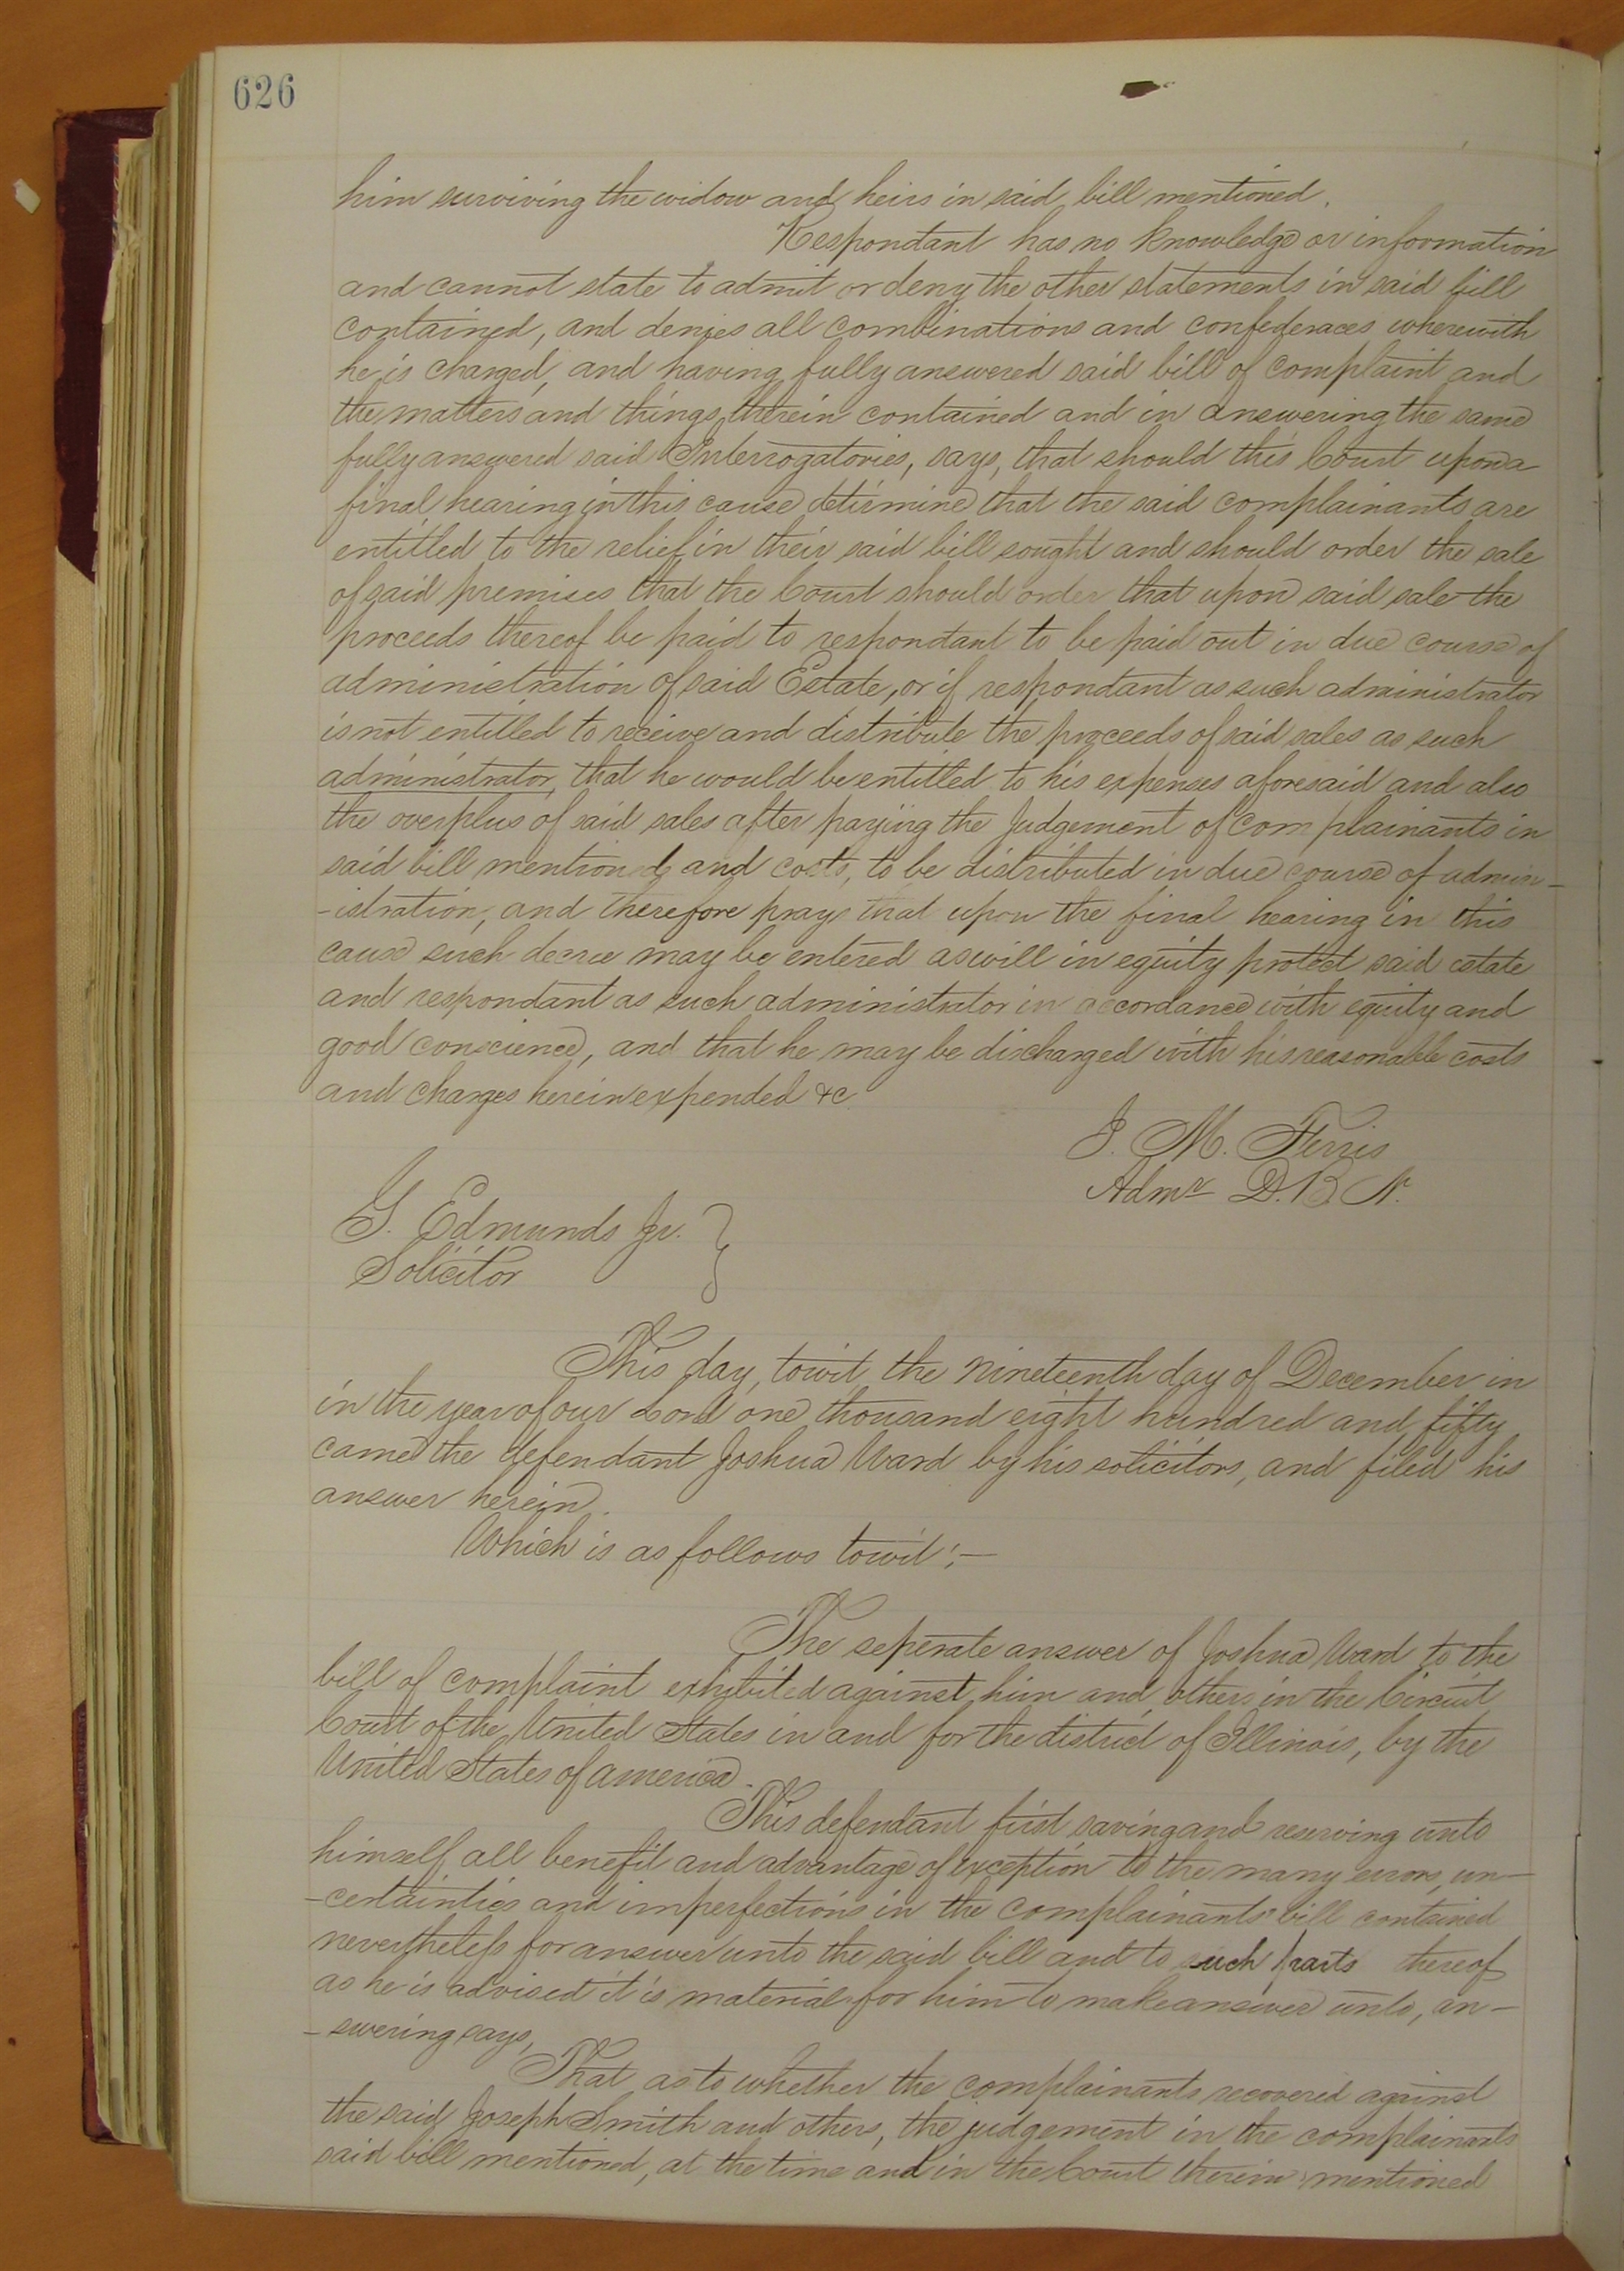 626
him surviving the widow and heirs in said bill mentioned.
Respondant has no knowledge or information
and cannot state to admit or deny the other statements in said bill
contained, and denies all combinations and confederaces wherewith
he is charged, and having fully answered said bill of complaint and
the matters and things therein contained and in answering the same
fully answered said Interrogatories, says, that should this Court upon a
final hearing in this cause determine that the said complainants are
entitled to the relief in their said bill sought and should order the sale
of said premises that the Court should order that upon said sale the
proceeds thereof be paid to respondant to be paid out in due course of
administration of said Estate, or if respondant as such administrator
is not entitled to receive and distribute the proceeds of said sales as such
administrator, that he would be entitled to his expenses aforesaid and also
the overplus of said sales after paying the Judgement of complainants in
said bill mentioned and costs, to be distributed in due course of admin-
-istration, and therefore prays that upon the final hearing in this
cause such decree may be entered as will in equity protect said estate
and respondant as such administrator in accordance with equity and
good conscience, and that he may be discharged with his reasonable costs
and charges herein expended &c
J. M. Ferris
Admr D. B. N.
G. Edmunds Jr.
Solicitor
This day, towit, the nineteenth day of December in
in the year of our Lord one thousand eight hundred and fifty
came the defendant Joshua Ward by his solicitors, and filed his
answer herein.
Which is as follows towit:—
The seperate answer of Joshua Ward to the
bill of complaint exhibited against him and others in the Circuit
Court of the United States in and for the district of Illinois, by the
United States of America.
This defendant first saving and reserving unto
himself all benefit and advantage of exception to the many errors, un-
-certainties and imperfections in the complainants' bill contained
nevertheless for answer unto the said bill and to such parts thereof
as he is advised it is material for him to make answer unto, an-
-swering says,
That as to whether the complainants recovered against
the said Joseph Smith and others, the judgement in the complainants
said bill mentioned, at the time and in the Court therein mentioned